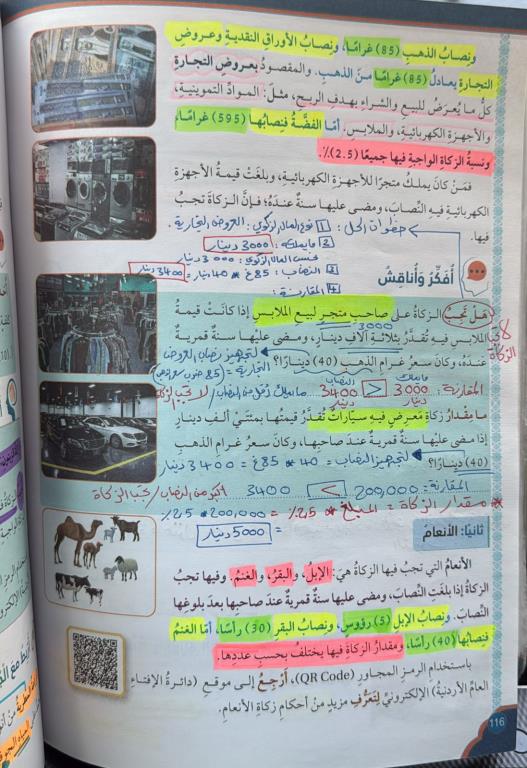 ونصاب الذهبِ (85) غرامًا، ونصابُ الأوراقِ النقديةِ وعروضِ
التجارةِ يعادلُ (85) غرامًا منَ الذهبِ. والمقصودُ بعروضِ التجارة
كلُّ ما يُعرَضُ للبيعِ والشراءِ بهدفِ الربحِ، مثلَ: الموادِّ التموينيةِ،
والأجهزةِ الكهربائيةِ، والملابسِ. أمّا الفضَّةُ فنِصابُها (595) غرامًا،
ونسبةُ الزكاةِ الواجبةِ فيها جميعًا (2.5)٪.
فمَنْ كانَ يملكُ متجرًا للأجهزةِ الكهربائيةِ، وبلغَتْ قيمةُ الأجهزةِ
الكهربائيةِ فيهِ النِّصابَ، ومضى عليها سنةٌ عندَهُ؛ فإنَّ الزكاةَ تجبُ
فيها.
خطوات الحل: 1 نوع المال الزكوي: العروض التجارية
2 ما يملكه: 3000 دينار
المال الزكوي: 3000 دينار
3 النصاب: 85غ * 40 دينار = 3400 دينار
4 المقارنة:
أُفَكِّرُ وَأُناقِشُ
هَلْ تجبُ الزكاةُ على صاحبِ متجرٍ لبيعِ الملابسِ إذا كانَتْ قيمةُ
3000
الملابسِ فيهِ تُقدَّرُ بثلاثةِ آلافِ دينارٍ، ومضى عليها سنةٌ قمريةٌ
لا تجب الزكاة
عندَهُ، وكانَ سعرُ غرامِ الذهبِ (40) دينارًا؟
لتجهيز نصاب العروض التجارية =
المقارنة: ما يملك 3000 دينار < النصاب 3400 دينار ما يملك أقل من النصاب / لا تجب الزكاة
ما مِقدارُ زكاةِ مَعرِضٍ فيهِ سيّاراتٌ تُقدَّرُ قيمتُها بمئتَيْ ألفِ دينارٍ
إذا مضى عليها سنةٌ قمريةٌ عندَ صاحبِها، وكانَ سعرُ غرامِ الذهبِ
(40) دينارًا؟ لتجهيز النصاب = 40 * 85غ = 3400 دينار
المقارنة = 200,000 > 3400 أكثر من النصاب / تجب الزكاة
* مقدار الزكاة = المبلغ * 2,5٪ = 200,000 * 2,5٪
= 5000 دينار
ثانيًا: الأنعامُ
الأنعامُ التي تجبُ فيها الزكاةُ هيَ: الإبلُ، والبقرُ، والغنمُ. وفيها تجبُ
الزكاةُ إذا بلغَتِ النِّصابَ، ومضى عليها سنةٌ قمريةٌ عندَ صاحبِها بعدَ بلوغِها
النِّصابَ. ونصابُ الإبلِ (5) رؤوسٍ، ونصابُ البقرِ (30) رأسًا، أمّا الغنمُ
فنِصابُها (40) رأسًا، ومقدارُ الزكاةِ فيها يختلفُ بحسبِ عددِها.
باستخدامِ الرمزِ المجاورِ (QR Code)، أَرْجِعُ إلى موقعِ (دائرةِ الإفتاءِ
العامِّ الأردنيةِ) الإلكترونيِّ لِتَعَرُّفِ مزيدٍ منْ أحكامِ زكاةِ الأنعامِ.
116